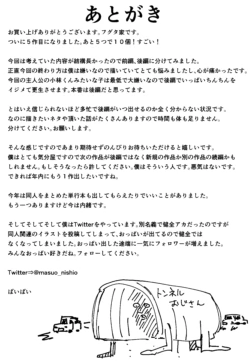 あとがき
お買い上げありがとうございます。フグタ家です。
ついに5作目になりました。あと5つで10個！すごい！
今回は考えていた内容が結構長かったので前編、後編に分けてみました。
正直今回の終わり方は僕は嫌いなので描いていてとても悩みましたし、心が痛かったです。
今回の主人公の小林くんみたいな子は最低で大嫌いなので後編でいっぱいちんちんを
イジメて更生させます。本番は後編だと思ってます。
とはいえ信じられないほど多忙で後編がいつ出せるのか全く分からない状況です。
なのに描きたいネタや漬いた話がたくさんありますので時間も体も足りません。
分けてください。お願いします。
そんな感じですのであまり期待せずのんびりお待ちいただけると嬉しいです。
僕はとても気分屋ですので次の作品が後編ではなく新規の作品か別の作品の続編かも
しれません。もしそうなったら許してください。僕はそういう人です。悪気はないです。
できれば年内にもう1作出したいですね。
今年は同人をまとめた単行本も出してもらえたりでいいことがありました。
もう一つありますけど今は内緒です。
そしてそしてそして僕はTwitterをやっています。別名義で健全アカだったのですが
同人関連のイラストを投稿してしまって、おっぱいが出てるので健全では
なくなってしまいました。おっぱい出した途端に一気にフォロワーが増えました。
みんなおっぱい好きだね。フォローしてください。
Twitter⇒@masuo_nishio
ばいばい
トンネル
おじさん